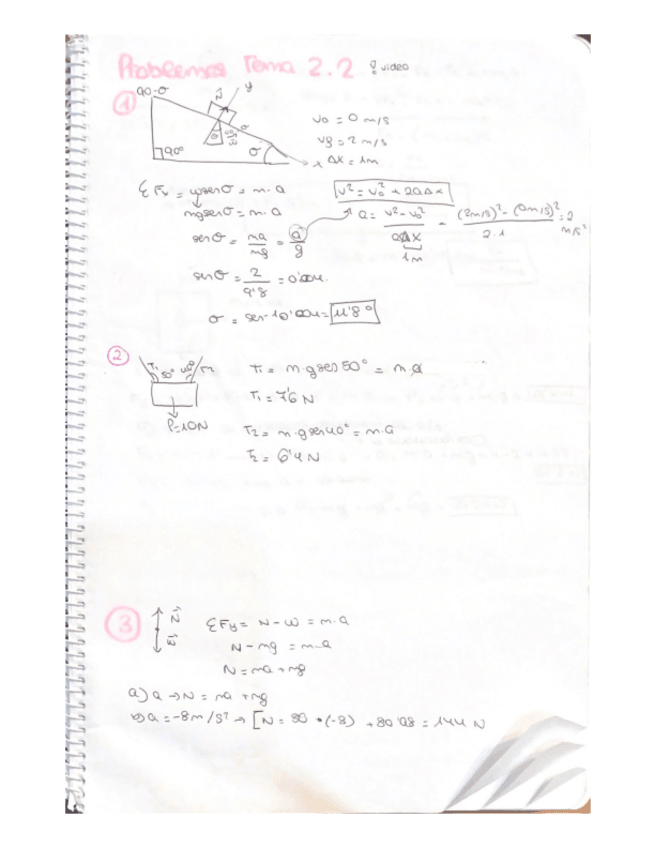 Problemas Tema 2.2 video
1
90-σ
N
y
σ
90°
σ
x
v0 = 0 m/s
vf = 2 m/s
ΔX = 1m
ΣFx = wsenσ = m·a
mgsenσ = m·a
senσ = ma/mg = a/g
senσ = 2/9'8
σ = 11'8°
v² = v0² + 2aΔx
a = v²-v0²/2ΔX = (2m/s)²-(0m/s)²/2·1 = 2 m/s²
1m
2
T1 50° 40° T2
P=10N
T1 = m·gsen50° = m·a
T1 = 7'6 N
T2 = m·gsen40° = m·a
T2 = 6'4 N
3
N
W
ΣFy = N - w = m·a
N - mg = m·a
N = ma + mg
a) a → N = ma + mg
b) a = -8m/s² → [N = 80 · (-8) + 80·9'8 = 144 N